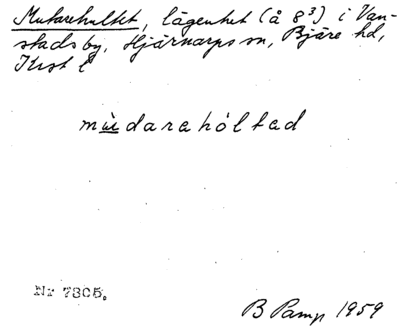 Mutarehultet, lägenhet (å 8³) i Van-
stads by, Hjärnarps sn, Bjäre hd,
Krst l
mùdarehóltad
Nr 7305.
B Pamp 1959